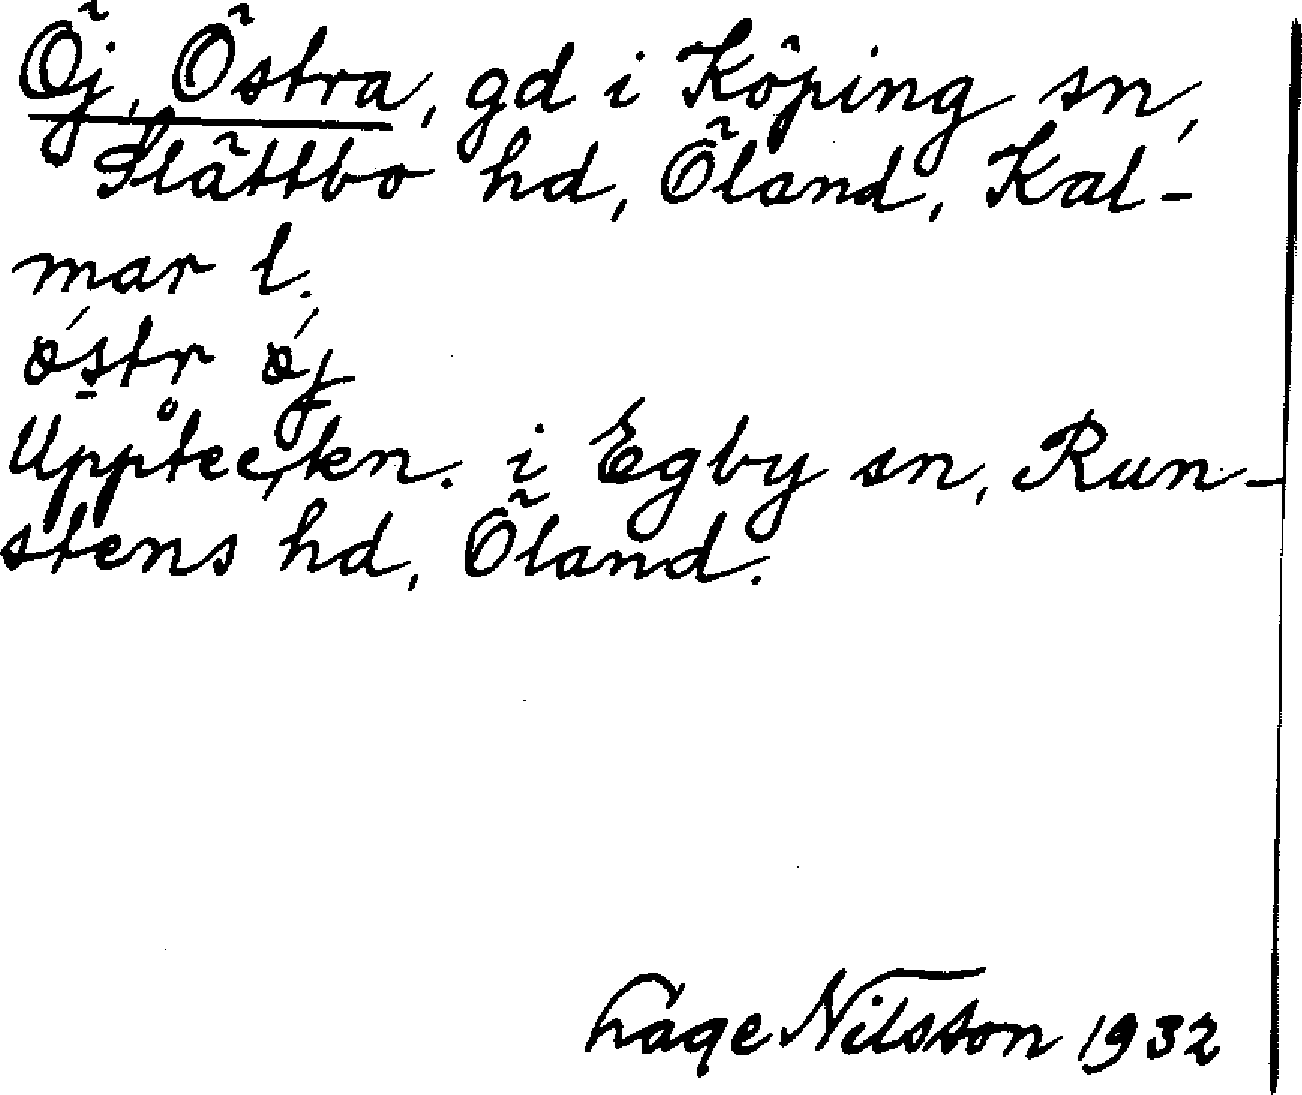 Öj, Östra, gd i Köping sn,
Slättbo hd, Öland, Kal-
mar l.
östr öj
Uppteckn. i Egby sn, Run-
stens hd, Öland.
Nilsson 1932